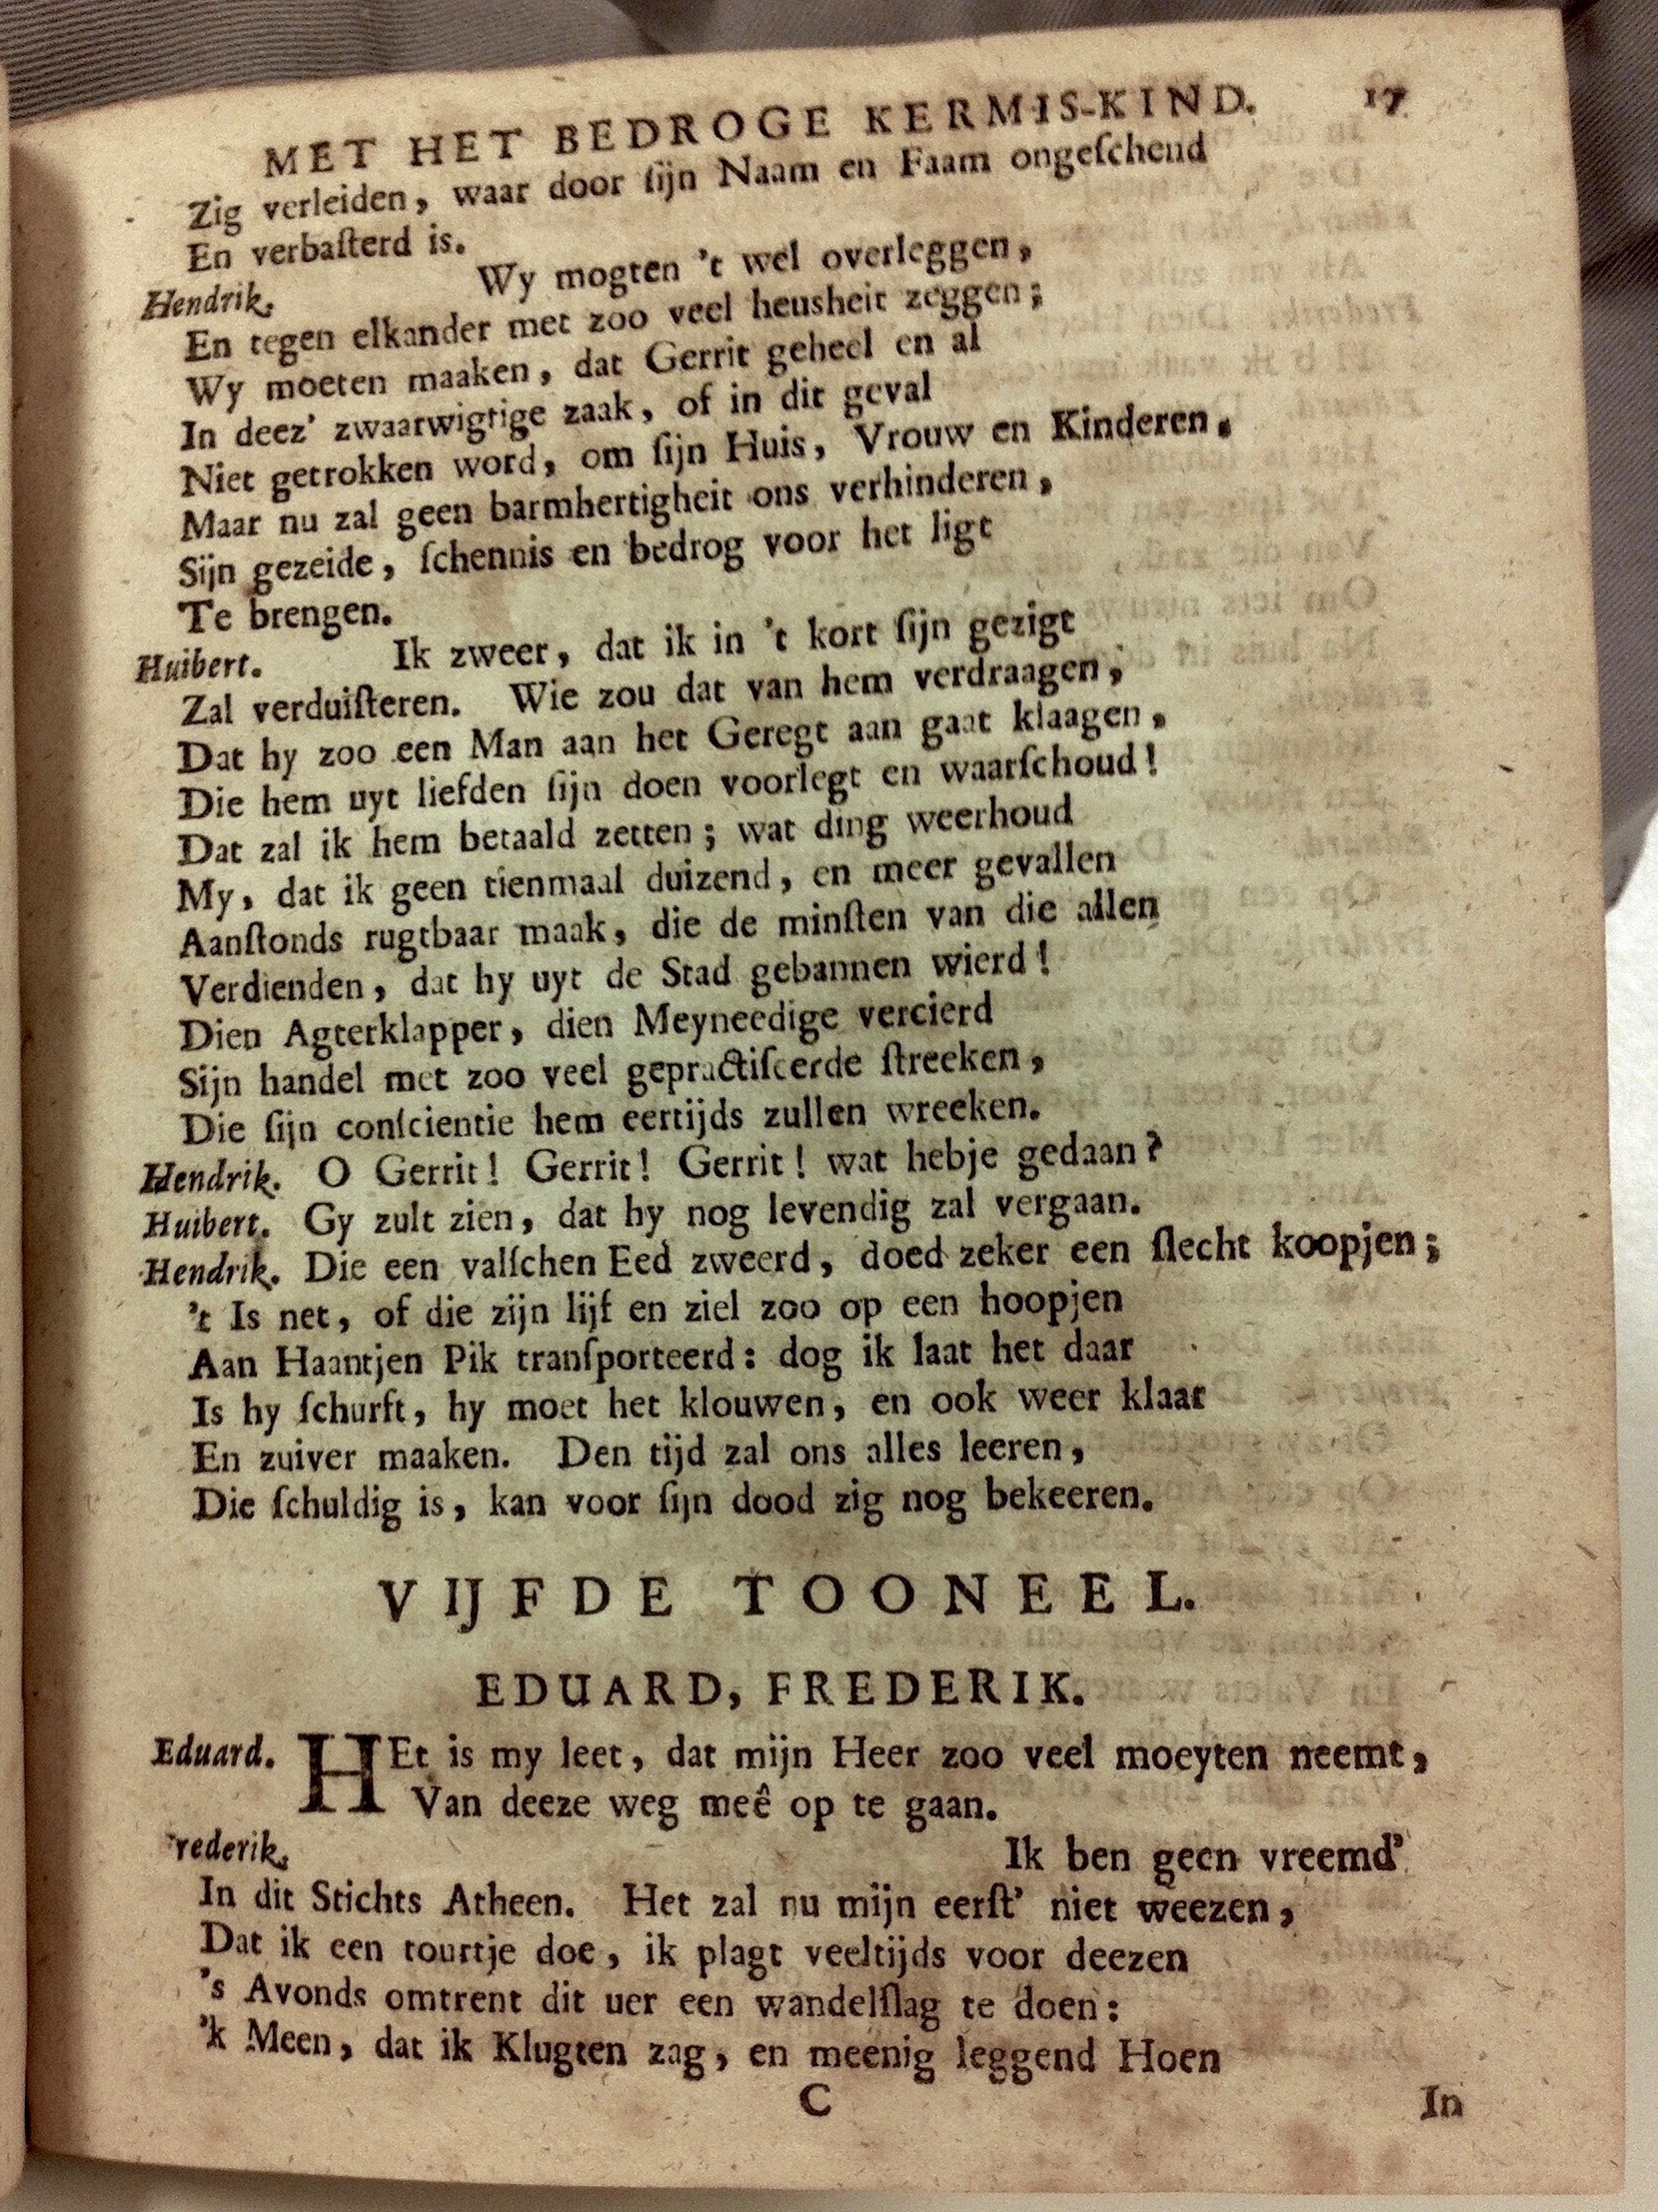 MET HET BEDROGE KERMIS-KIND. 17
Zig verleiden, waar door ſijn Naam en Faam ongeſchend
En verbaſterd is.
Hendrik. Wy mogten 't wel overleggen,
En tegen elkander met zoo veel heusheit zeggen;
Wy moeten maaken, dat Gerrit geheel en al
In deez' zwaarwigtige zaak, of in dit geval
Niet getrokken word, om ſijn Huis, Vrouw en Kinderen.
Maar nu zal geen barmhertigheit ons verhinderen,
Sijn gezeide, ſchennis en bedrog voor het ligt
Te brengen.
Huibert. Ik zweer, dat ik in 't kort ſijn gezigt
Zal verduiſteren. Wie zou dat van hem verdraagen,
Dat hy zoo een Man aan het Geregt aan gaat klaagen,
Die hem uyt liefden ſijn doen voorlegt en waarſchoud!
Dat zal ik hem betaald zetten; wat ding weerhoud
My, dat ik geen tienmaal duizend, en meer gevallen
Aanſtonds rugtbaar maak, die de minſten van die allen
Verdienden, dat hy uyt de Stad gebannen wierd!
Dien Agterklapper, dien Meyneedige vercierd
Sijn handel met zoo veel gepractiſeerde ſtreeken,
Die ſijn conſcientie hem eertijds zullen wreeken.
Hendrik. O Gerrit! Gerrit! Gerrit! wat hebje gedaan?
Huibert. Gy zult zien, dat hy nog levendig zal vergaan.
Hendrik. Die een valſchen Eed zweerd, doed zeker een ſlecht koopjen;
't Is net, of die zijn lijf en ziel zoo op een hoopjen
Aan Haantjen Pik tranſporteerd: dog ik laat het daar
Is hy ſchurft, hy moet het klouwen, en ook weer klaar
En zuiver maaken. Den tijd zal ons alles leeren,
Die ſchuldig is, kan voor ſijn dood zig nog bekeeren.
VIJFDE TOONEEL.
EDUARD, FREDERIK.
Eduard. HEt is my leet, dat mijn Heer zoo veel moeyten neemt,
Van deeze weg meê op te gaan.
rederik. Ik ben geen vreemd'
In dit Stichts Atheen. Het zal nu mijn eerſt' niet weezen,
Dat ik een tourtje doe, ik plagt veeltijds voor deezen
's Avonds omtrent dit uer een wandelſlag te doen:
'k Meen, dat ik Klugten zag, en meenig leggend Hoen
C In